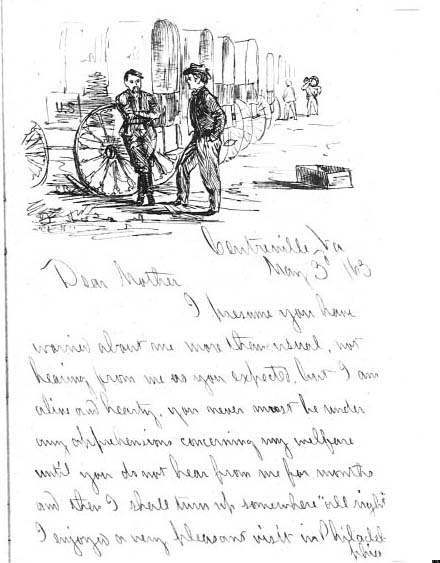 U.S.
Centreville, Va
May 3d /63
Dear Mother
I presume you have
worried about me more than usual, not
hearing from me as you expected, but I am
alive and hearty. you never must be under
any apprehensions concerning my welfare
until you do not hear from me for months
and then I shall turn up somewhere "all right"
I enjoyed a very pleasant visit in Philadel
phia